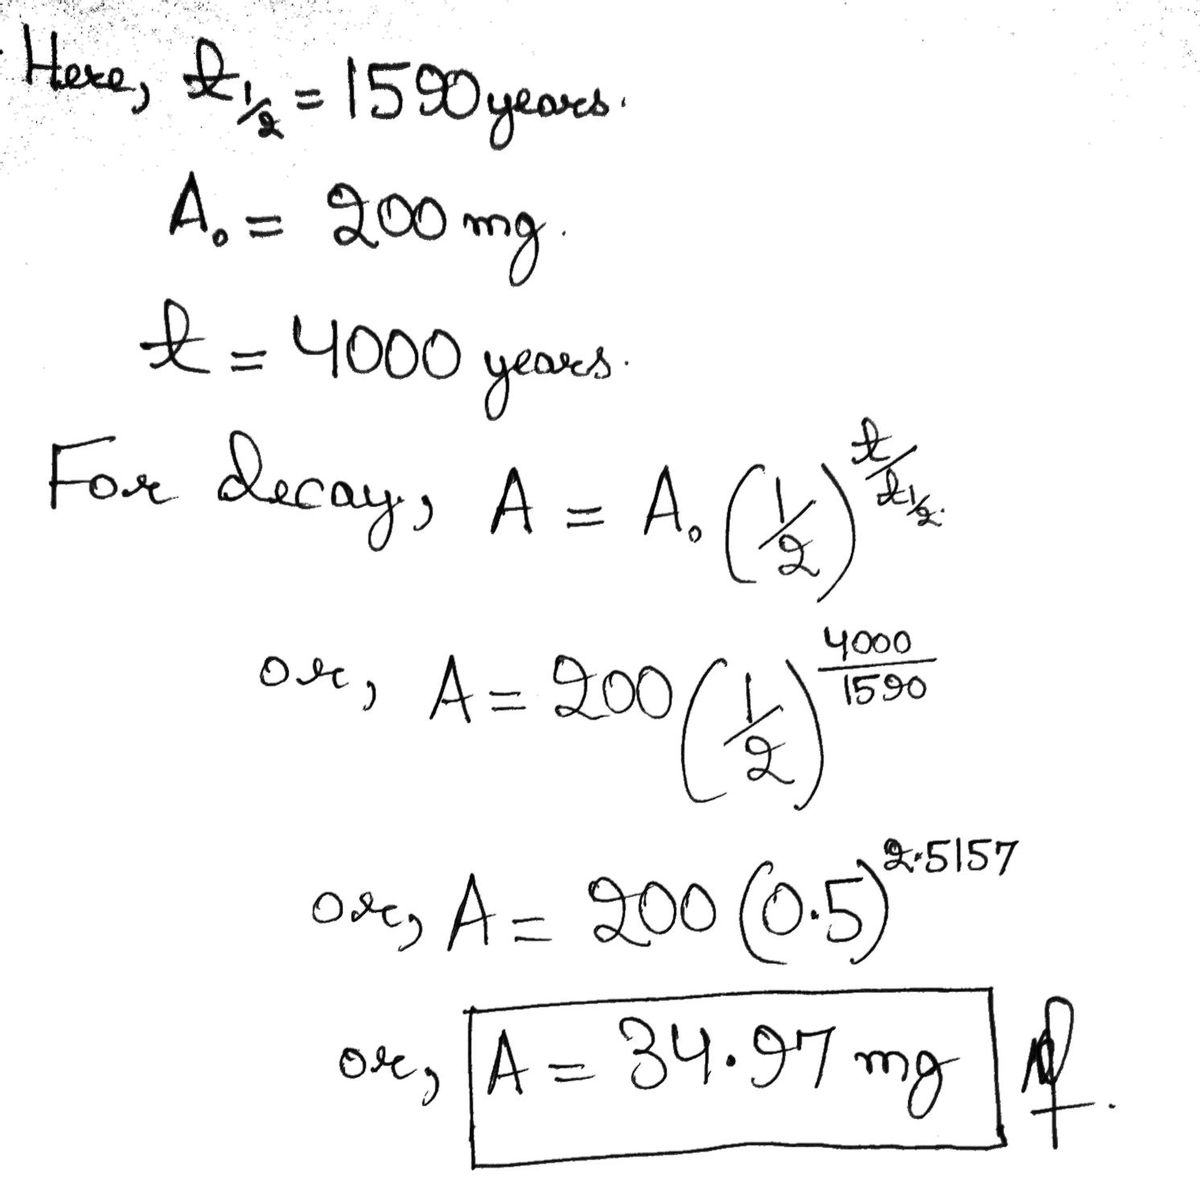 Here, t1/2 = 1590 years.
A₀ = 200 mg.
t = 4000 years.
For decay, A = A₀ (1/2)^(t/t1/2)
or, A = 200 (1/2)^(4000/1590)
or, A = 200 (0.5)^2.5157
or, A = 34.97 mg